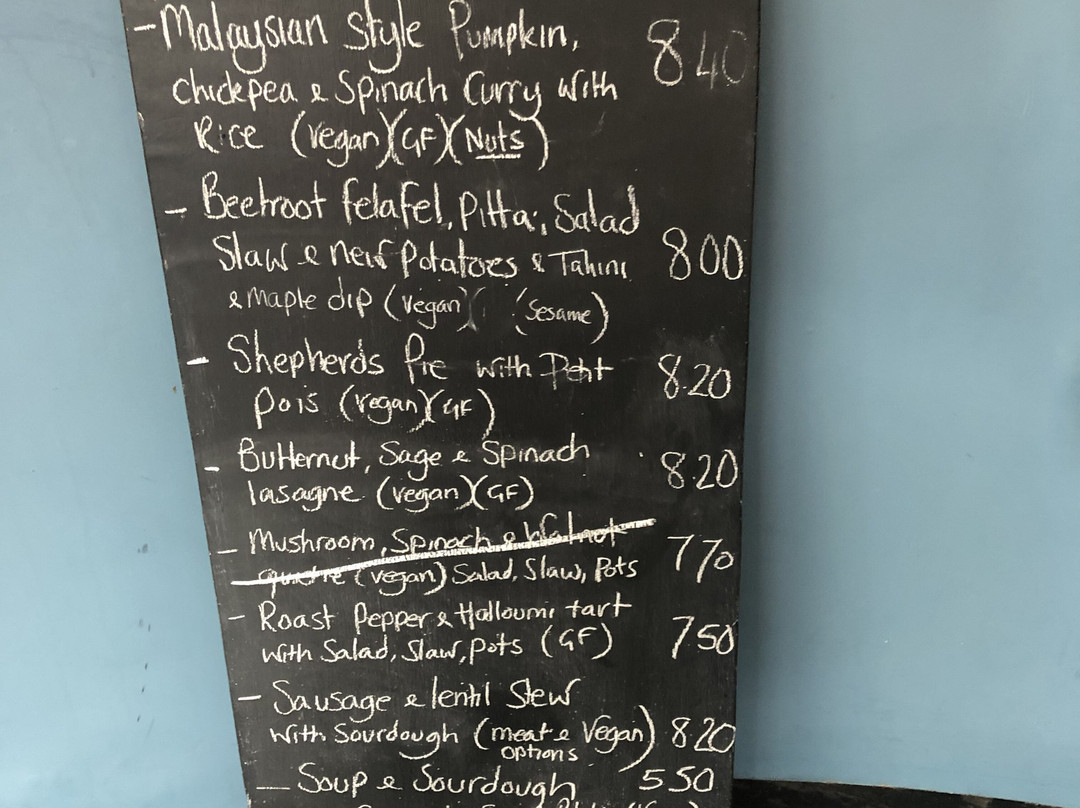 - Malaysian Style Pumpkin, 8.40
chickpea & Spinach Curry with
Rice (vegan)(GF)(Nuts)
- Beetroot felafel, Pitta, Salad
Slaw & new Potatoes & Tahini 800
& maple dip (vegan) (Sesame)
- Shepherds Pie with Petit 8.20
pois (vegan)(GF)
- Butternut, Sage & Spinach 8.20
lasagne (vegan)(GF)
- Mushroom, Spinach & Walnut 770
quiche (vegan) Salad, Slaw, Pots
- Roast Pepper & Halloumi tart
with Salad, Slaw, pots (GF) 750
- Sausage & lentil Stew
with Sourdough (meat & Vegan) 820
options
- Soup & Sourdough 550